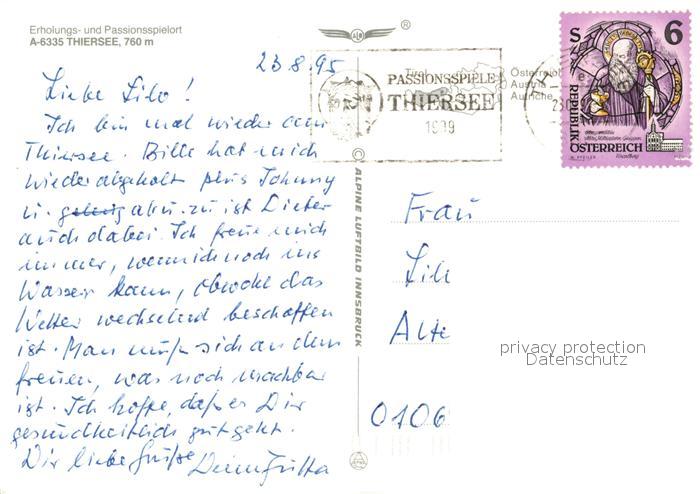 Erholungs- und Passionsspielort
A-6335 THIERSEE, 760 m
®
23.8.95
Liebe Lilo!
Ich bin mal wieder am
Thiersee. Bille hat mich
wieder abgeholt plus Johnny
u. ab u. zu ist Dieter
auch dabei. Ich freue mich
immer, wenn ich noch ins
Wasser kann, obwohl das
Wetter wechselnd beschaffen
ist. Man muß sich an dem
freuen, was noch machbar
ist. Ich hoffe, daß es Dir
gesundheitlich gut geht.
Dir liebe Grüße Deine Jutta
© ALPINE LUFTBILD INNSBRUCK
Tirol
PASSIONSSPIELE
THIERSEE
1999
Österreich
Austria
Autriche
S 6
REPUBLIK
ÖSTERREICH
Frau
Lil
Alte
0106
privacy protection
Datenschutz